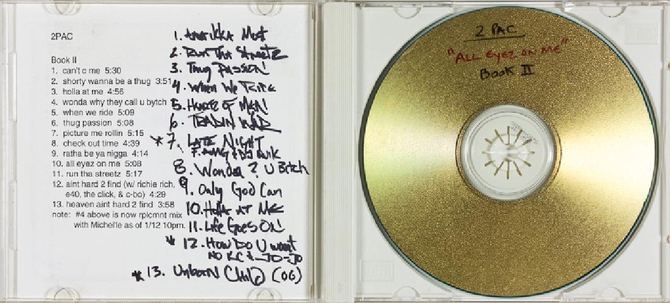 2PAC
Book II
1. can't c me 5:30
2. shorty wanna be a thug 3:51
3. holla at me 4:56
4. wonda why they call u bytch
5. when we ride 5:09
6. thug passion 5:08
7. picture me rollin 5:15
8. check out time 4:39
9. ratha be ya nigga 4:14
10. all eyez on me 5:08
11. run tha streetz 5:17
12. aint hard 2 find (w/ richie rich,
e40, the click, & c-bo) 4:29
13. heaven aint hard 2 find 3:58
note: #4 above is now rplcmnt mix
with Michel'le as of 1/12 10pm.
1. Amerikka Most
2. Run Tha Streetz
3. Thug Passion!
4. When We Ride
5. House of Men!
6. TRADIN WAR
* 7. LATE NIGHT
& DJ Quik
8. Wonda ? U Bitch
9. Only God Can
10. Holla AT ME
11. Life Goes On!
* 12. How Do U want
NO KC & JO-JO
* 13. Unborn Child (OG)
2 PAC
"ALL EYEZ ON ME"
Book II